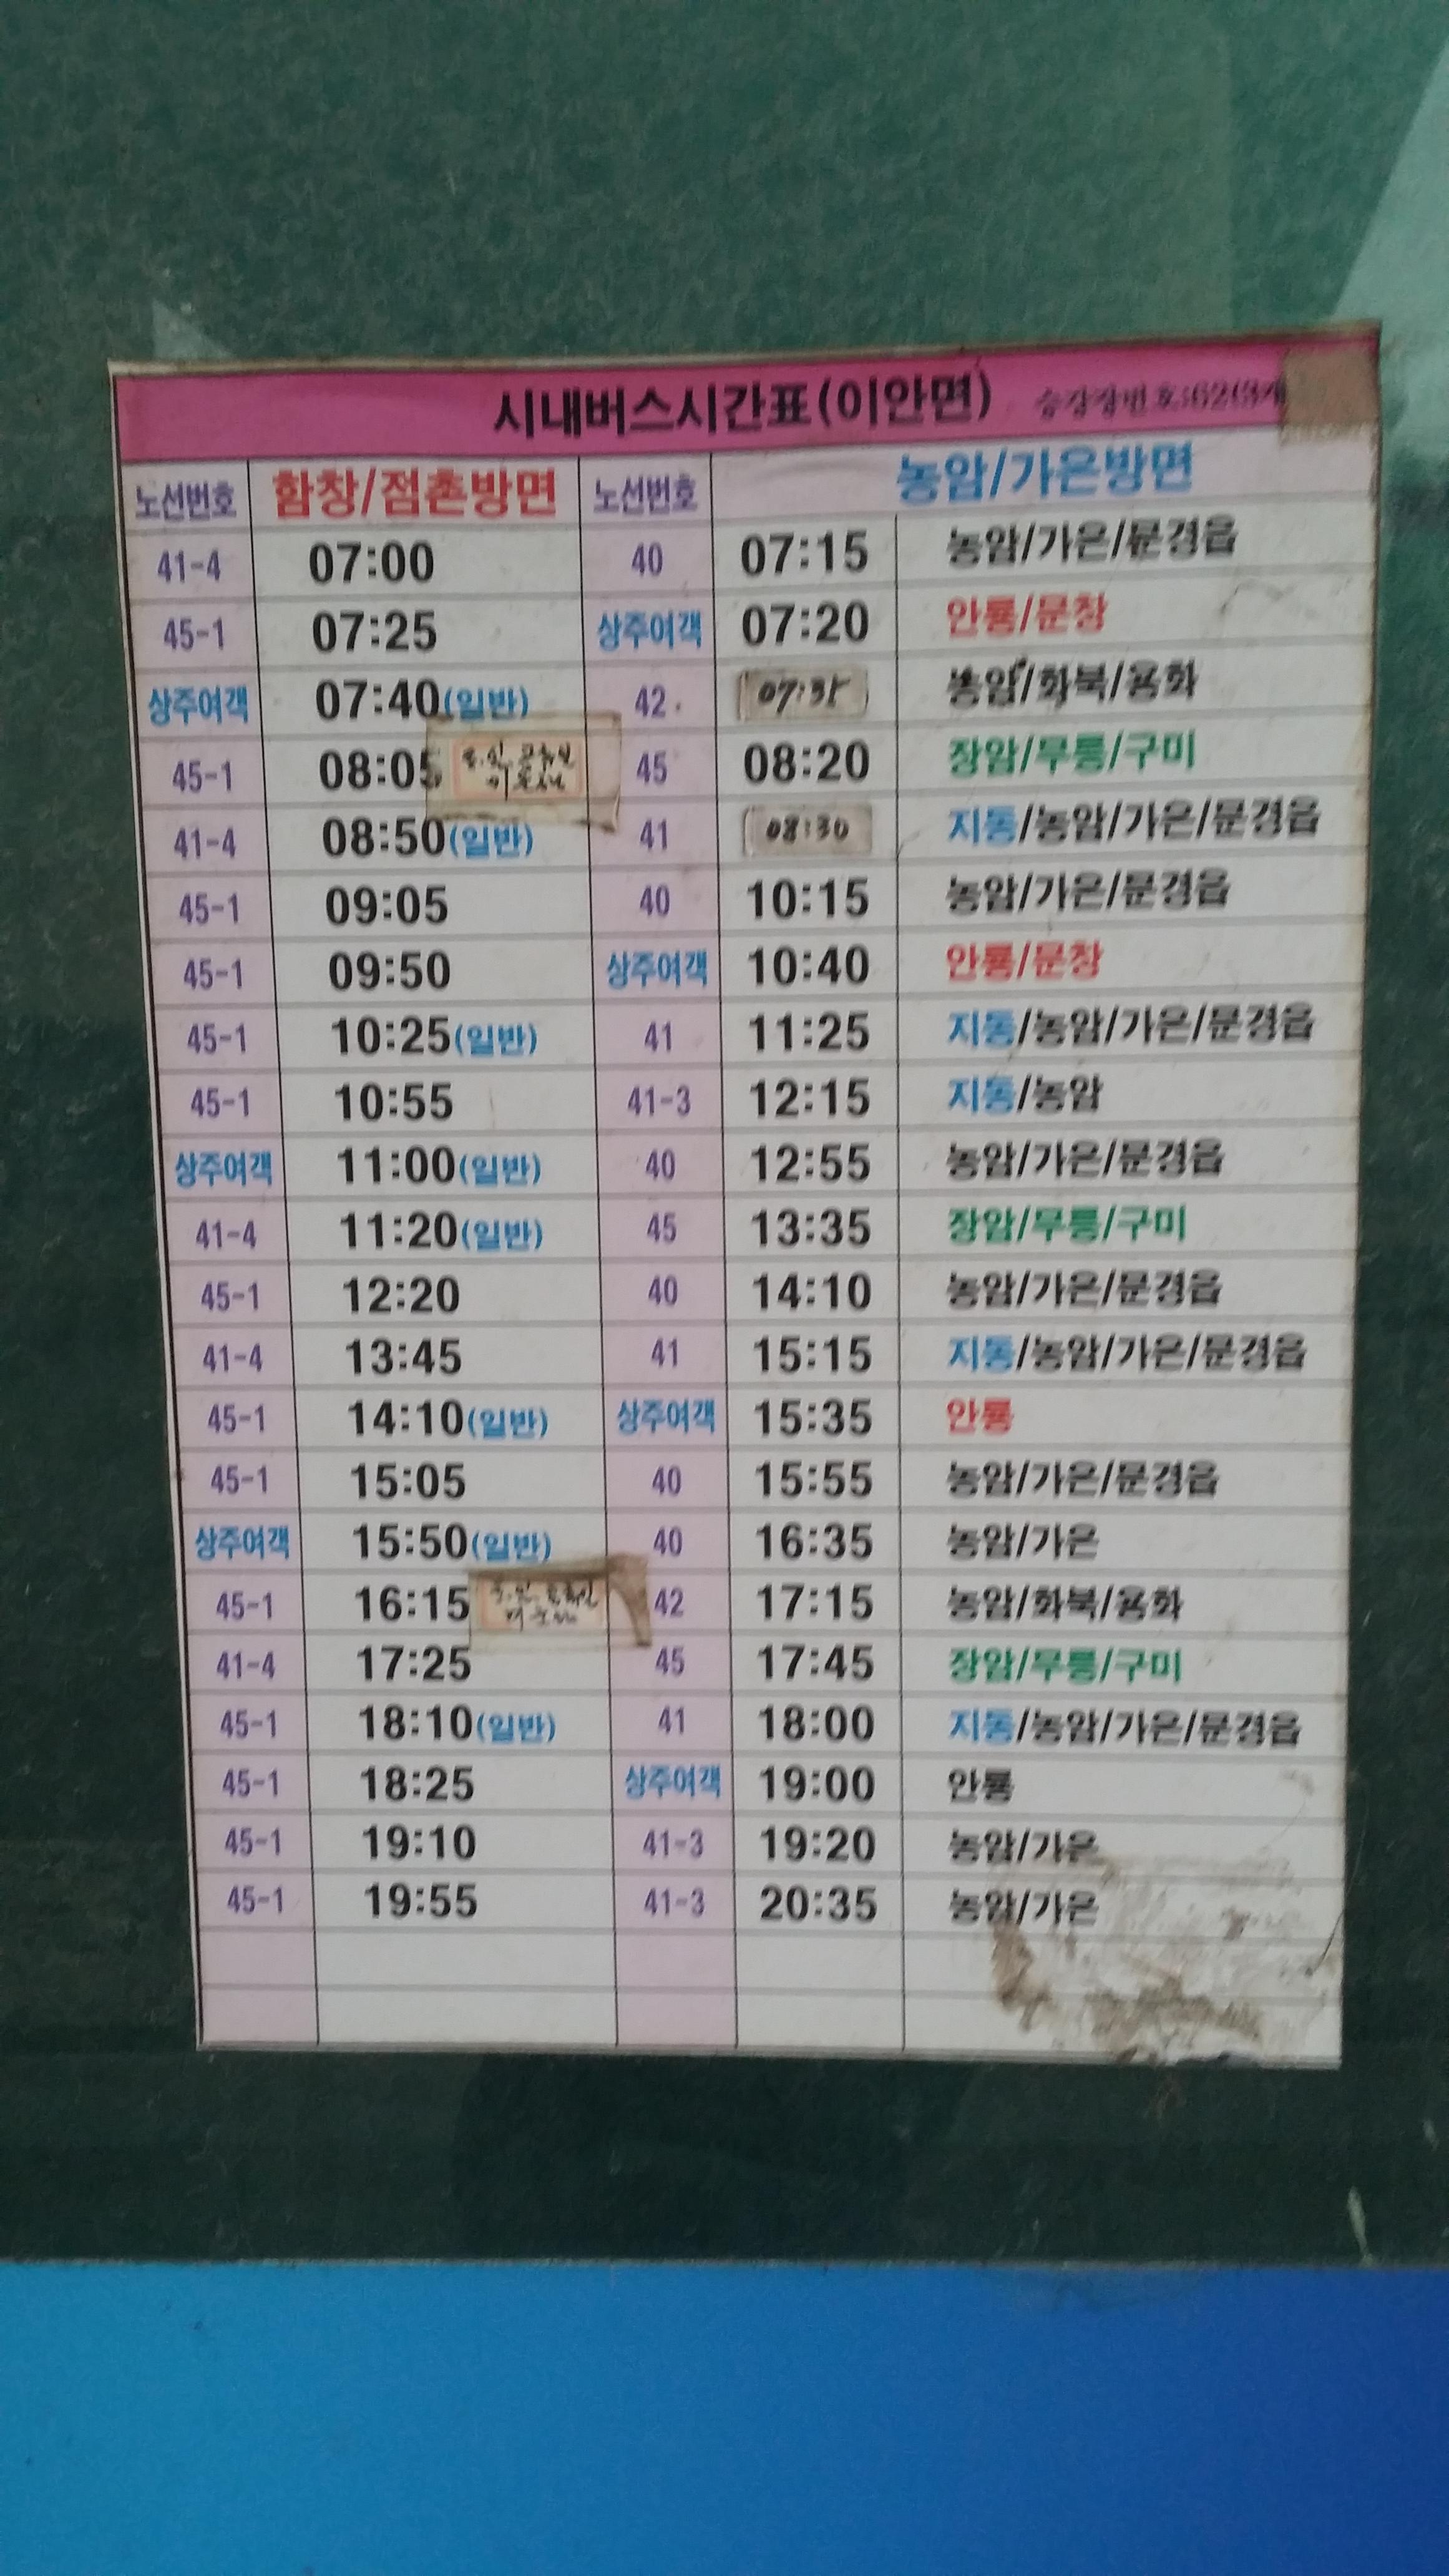 시내버스시간표(이안면)
노선번호 함창/점촌방면 노선번호 농암/가은방면
41-4 07:00 40 07:15 농암/가은/문경읍
45-1 07:25 상주여객 07:20 안룡/문창
상주여객 07:40(일반) 42 07:35 농암/화북/용화
45-1 08:05 45 08:20 장암/무릉/구미
41-4 08:50(일반) 41 08:30 지동/농암/가은/문경읍
45-1 09:05 40 10:15 농암/가은/문경읍
45-1 09:50 상주여객 10:40 안룡/문창
45-1 10:25(일반) 41 11:25 지동/농암/가은/문경읍
45-1 10:55 41-3 12:15 지동/농암
상주여객 11:00(일반) 40 12:55 농암/가은/문경읍
41-4 11:20(일반) 45 13:35 장암/무릉/구미
45-1 12:20 40 14:10 농암/가은/문경읍
41-4 13:45 41 15:15 지동/농암/가은/문경읍
45-1 14:10(일반) 상주여객 15:35 안룡
45-1 15:05 40 15:55 농암/가은/문경읍
상주여객 15:50(일반) 40 16:35 농암/가은
45-1 16:15 42 17:15 농암/화북/용화
41-4 17:25 45 17:45 장암/무릉/구미
45-1 18:10(일반) 41 18:00 지동/농암/가은/문경읍
45-1 18:25 상주여객 19:00 안룡
45-1 19:10 41-3 19:20 농암/가은
45-1 19:55 41-3 20:35 농암/가은